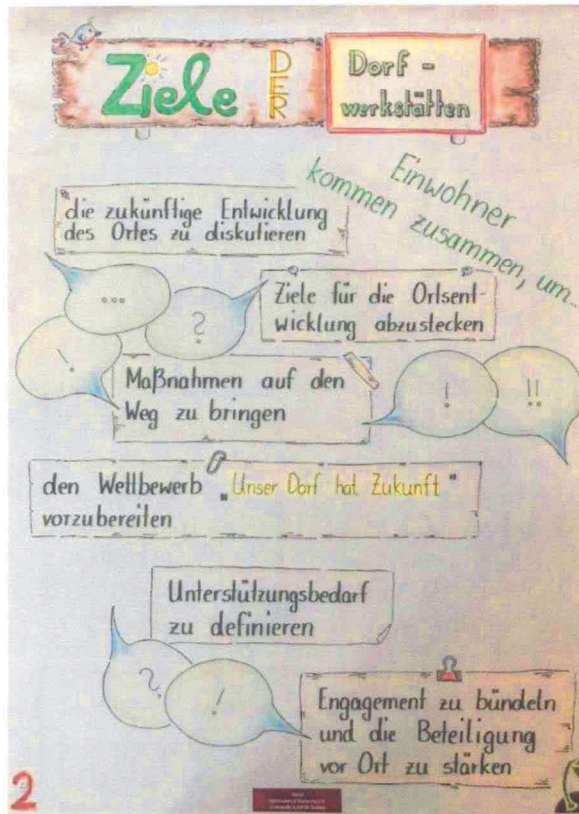 Ziele DER Dorf-
werkstätten
Einwohner
kommen zusammen, um...
die zukünftige Entwicklung
des Ortes zu diskutieren
...
?
Ziele für die Ortsent-
wicklung abzustecken
!
Maßnahmen auf den
Weg zu bringen
!
!!
den Wettbewerb "Unser Dorf hat Zukunft"
vorzubereiten
Unterstützungsbedarf
zu definieren
?
!
Engagement zu bündeln
und die Beteiligung
vor Ort zu stärken
2